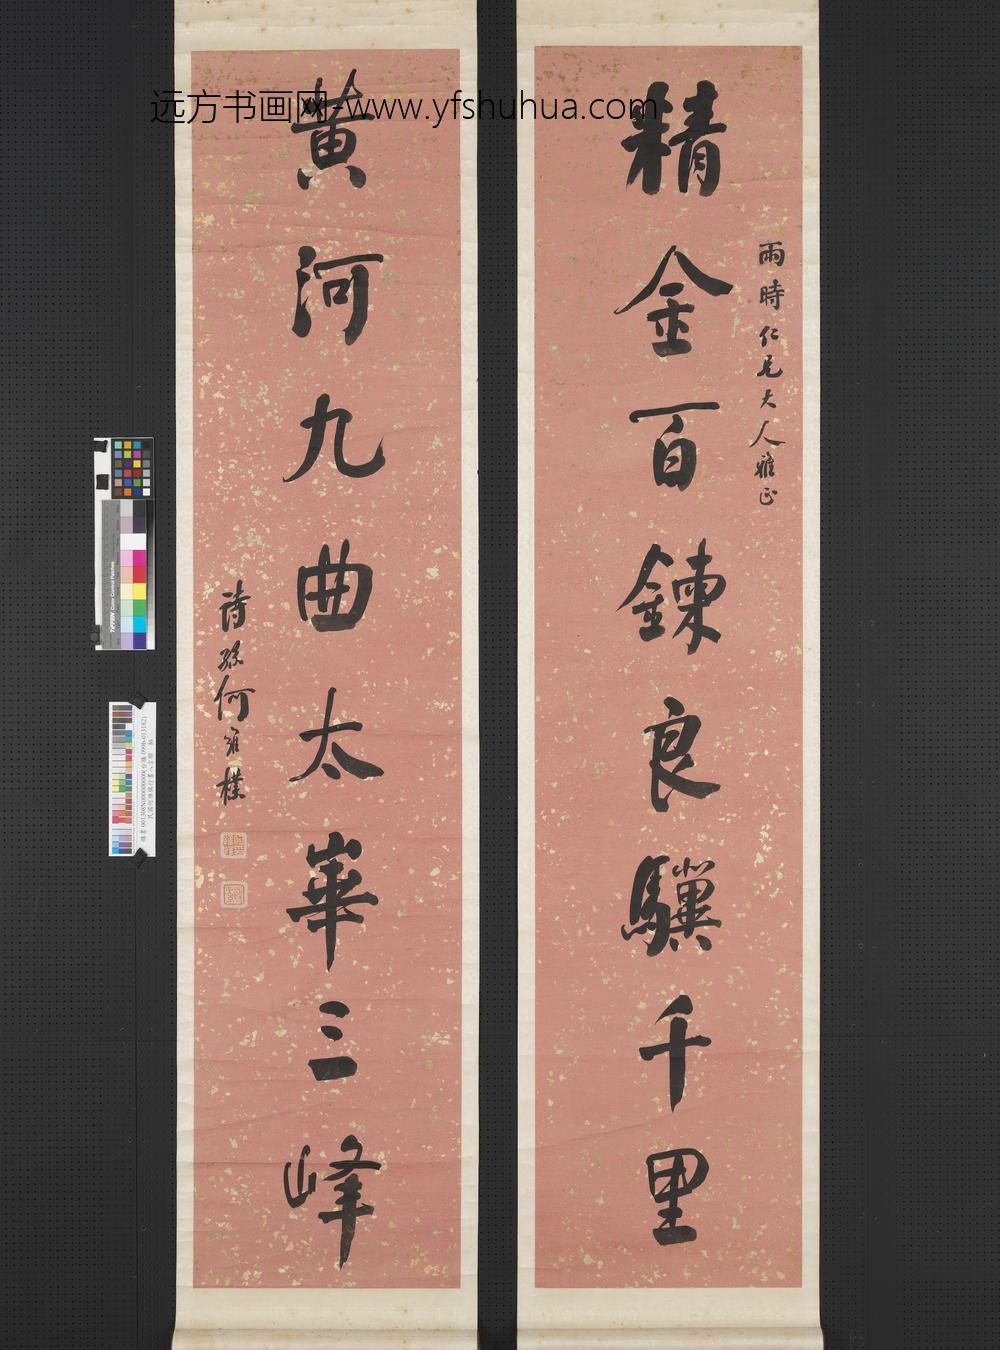 远方书画网-www.yfshuhua.com
精金百鍊良驥千里
雨時仁兄大人雅正
黃河九曲太華三峰
詩孫何維樸